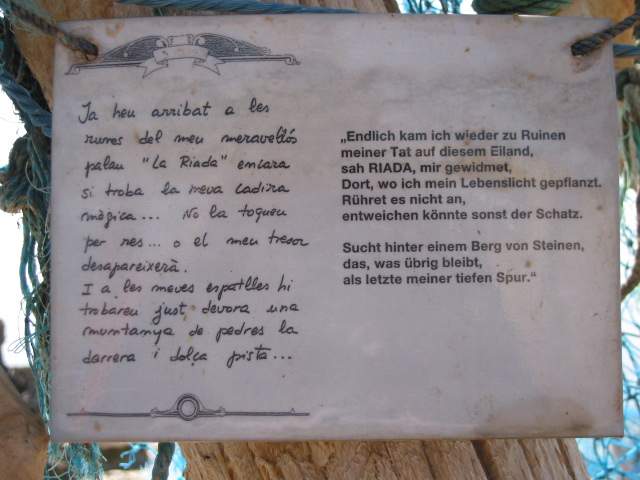 Ja heu arribat a les
runes del meu meravellós
palau "La Riada" encara
si troba la meva cadira
màgica... No la toqueu
per res... o el meu tresor
desapareixerà.
I a les meves espatlles hi
trobareu just devora una
muntanya de pedres la
darrera i dolça pista...
„Endlich kam ich wieder zu Ruinen
meiner Tat auf diesem Eiland,
sah RIADA, mir gewidmet,
Dort, wo ich mein Lebenslicht gepflanzt.
Rühret es nicht an,
entweichen könnte sonst der Schatz.
Sucht hinter einem Berg von Steinen,
das, was übrig bleibt,
als letzte meiner tiefen Spur.“